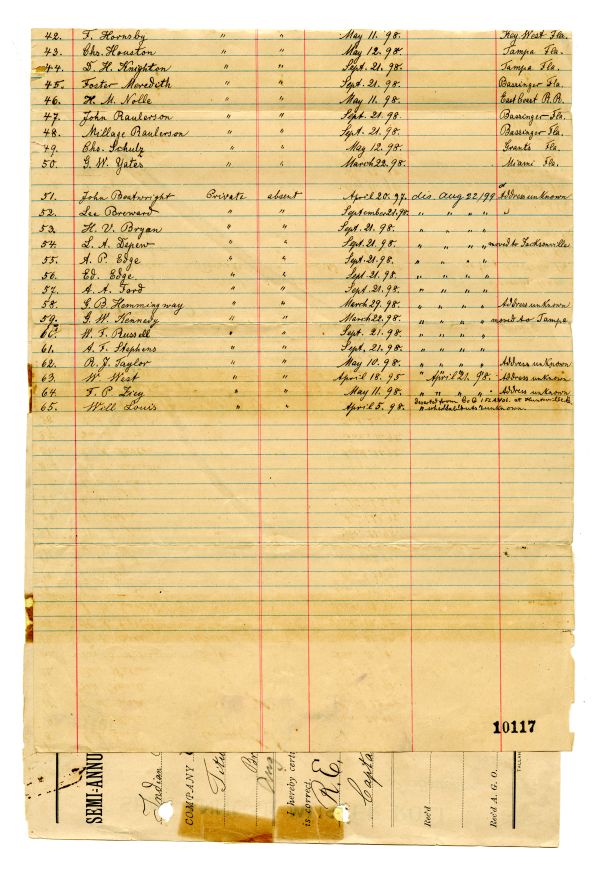 42. F. Hornsby " " May 11. 98. Key West Fla.
43. Chs. Houston " " May 12. 98. Tampa Fla.
44. D. H. Knighton " " Sept. 21. 98. Tampa Fla.
45. Foster Meredith " " Sept. 21. 98. Bassinger Fla.
46. H. M. Nolle " " May 11. 98. East Coast R.R.
47. John Raulerson " " Sept. 21. 98. Bassinger Fla.
48. Millage Raulerson " " Sept. 21. 98. Bassinger Fla.
49. Chs. Schulz " " May 12. 98. Grants Fla.
50. G. W. Yates " " March 22. 98. Miami Fla.
51. John Boatwright Private absent April 20. 97. dis. Aug 22/99 Address unknown
52. Lee Breward " " September 21. 98. " " " " "
53. H. V. Bryan " " Sept. 21. 98. " " " "
54. L. A. Depew " " Sept. 21. 98. " " " " moved to Jacksonville
55. A. P. Edge " " Sept. 21. 98. " " " "
56. Ed. Edge " " Sept. 21. 98. " " " "
57. A. A. Ford " " Sept. 21. 98. " " " "
58. G. B. Hemmingway " " March 29. 98. " " " " Address unknown
59. G. W. Kennedy " " March 22. 98. " " " " moved to Tampa
60. W. F. Russell " " Sept. 21. 98. " " " "
61. A. F. Stephens " " Sept. 21. 98. " " " "
62. R. J. Taylor " " May 10. 98. " " " " Address unknown
63. W. West " " April 18. 95 " April 21. 98. Address unknown
64. F. P. Ziey " " May 11. 98. " " " " Address unknown
65. Well Louis " " April 5. 98. from Co G 1 Fla Vol. at Huntsville
" unknown.
10117
SEMI-ANNU
Indian
COMPANY
Titu
I hereby certi
is correct.
R. E.
Capta
Rec'd
Rec'd A. G. O.
TALLAH